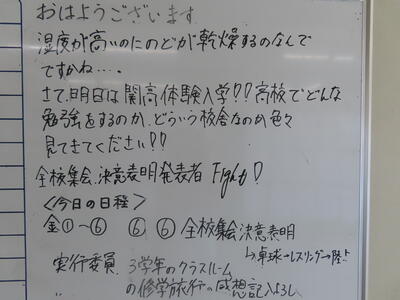 おはようございます
湿度が高いのにのどが乾燥するのなんで
ですかね…。
さて、明日は関高体験入学!!高校でどんな
勉強をするのか、どういう校舎なのか色々
見てきてください!!
全校集会、決意表明発表者 Fight!
〈今日の日程〉
金①〜⑥ ⑥ ⑥ 全校集会 決意表明
↳卓球→レスリング→陸上
実行委員 3学年のクラスルーム
の修学旅行の感想記入よろし